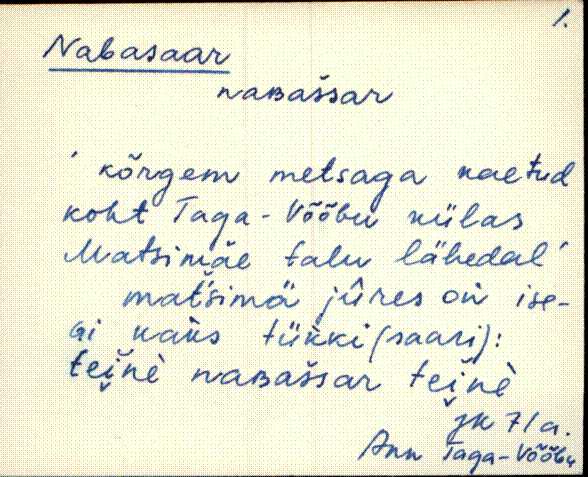 1.
Nabasaar
naʙaššar
ʽ kõrgem metsaga kaetud
koht Taga-Võõbu külas
Matsimäe talu lähedal ʼ
matšimä jûres on ise-
gi kaks tükki (saari):
teiǹe naʙaššar teiǹe
jk 71 a.
Ann Taga-Võõbu